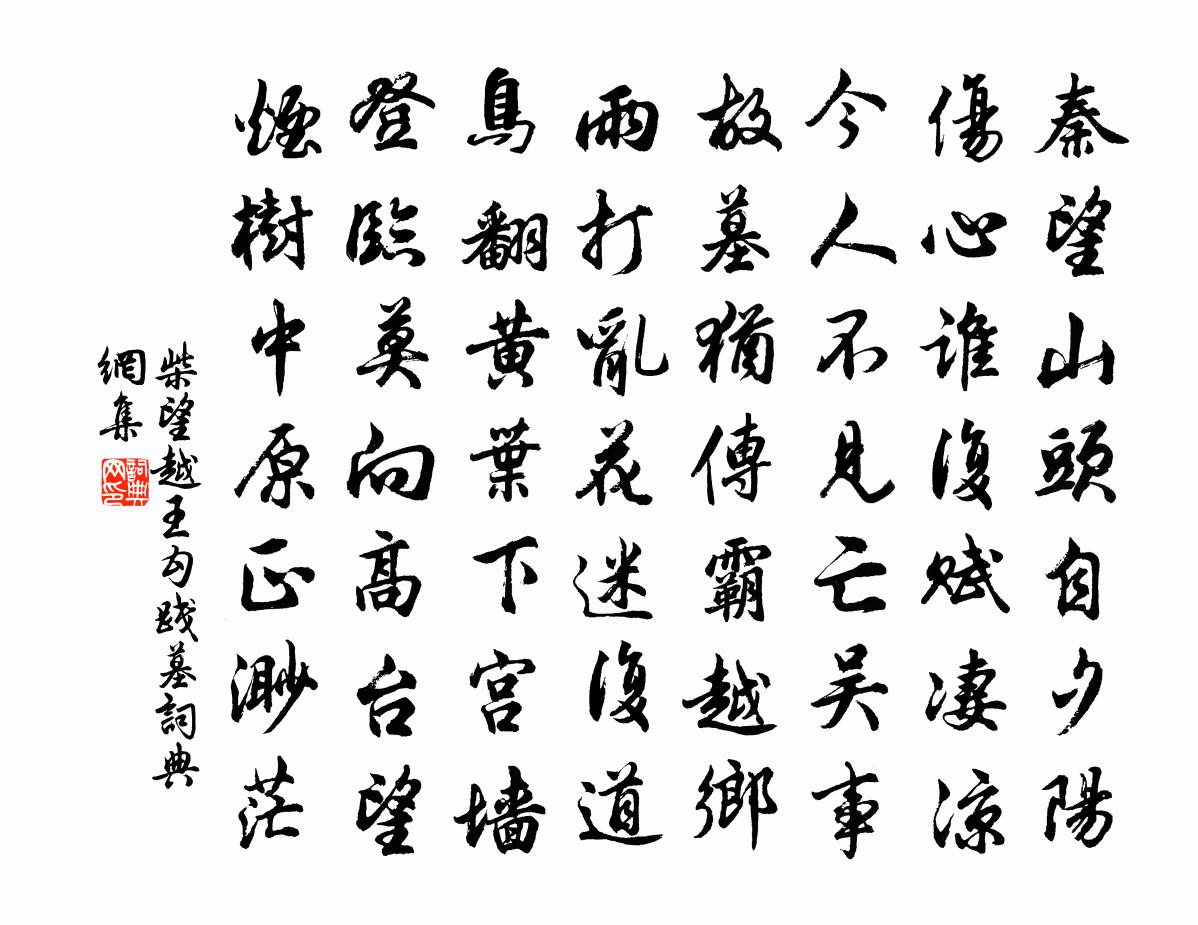 秦望山頭自夕陽
傷心誰復賦凄涼
今人不見亡吴事
故墓猶傳霸越鄉
雨打亂花迷復道
鳥翻黄葉下宫墙
登臨莫向高台望
煙樹中原正渺茫
柴望越王勾踐墓詞典
網集
詞典
网印